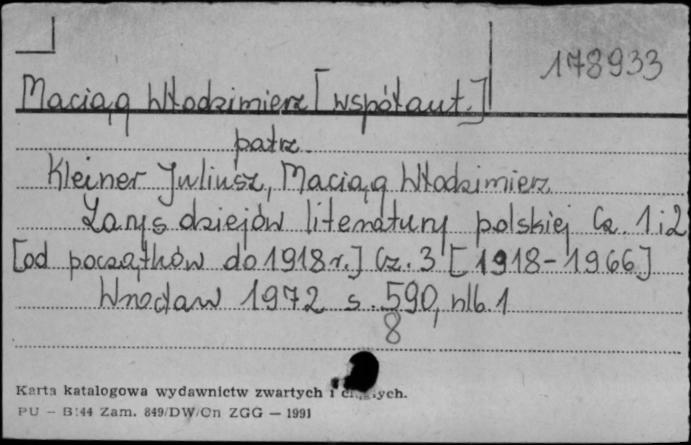 178933
Maciąg Włodzimierz [współaut.]
patrz
Kleiner Juliusz, Maciąg Włodzimierz
Zarys dziejów literatury polskiej Cz. 1 i 2
[od początków do 1918 r.] Cz. 3 [1918-1966]
Wrocław 1972 s. 590, nlb. 1
8
Karta katalogowa wydawnictw zwartych i ciągłych.
PU - B:44 Zam. 849/DW/Cn ZGG - 1991